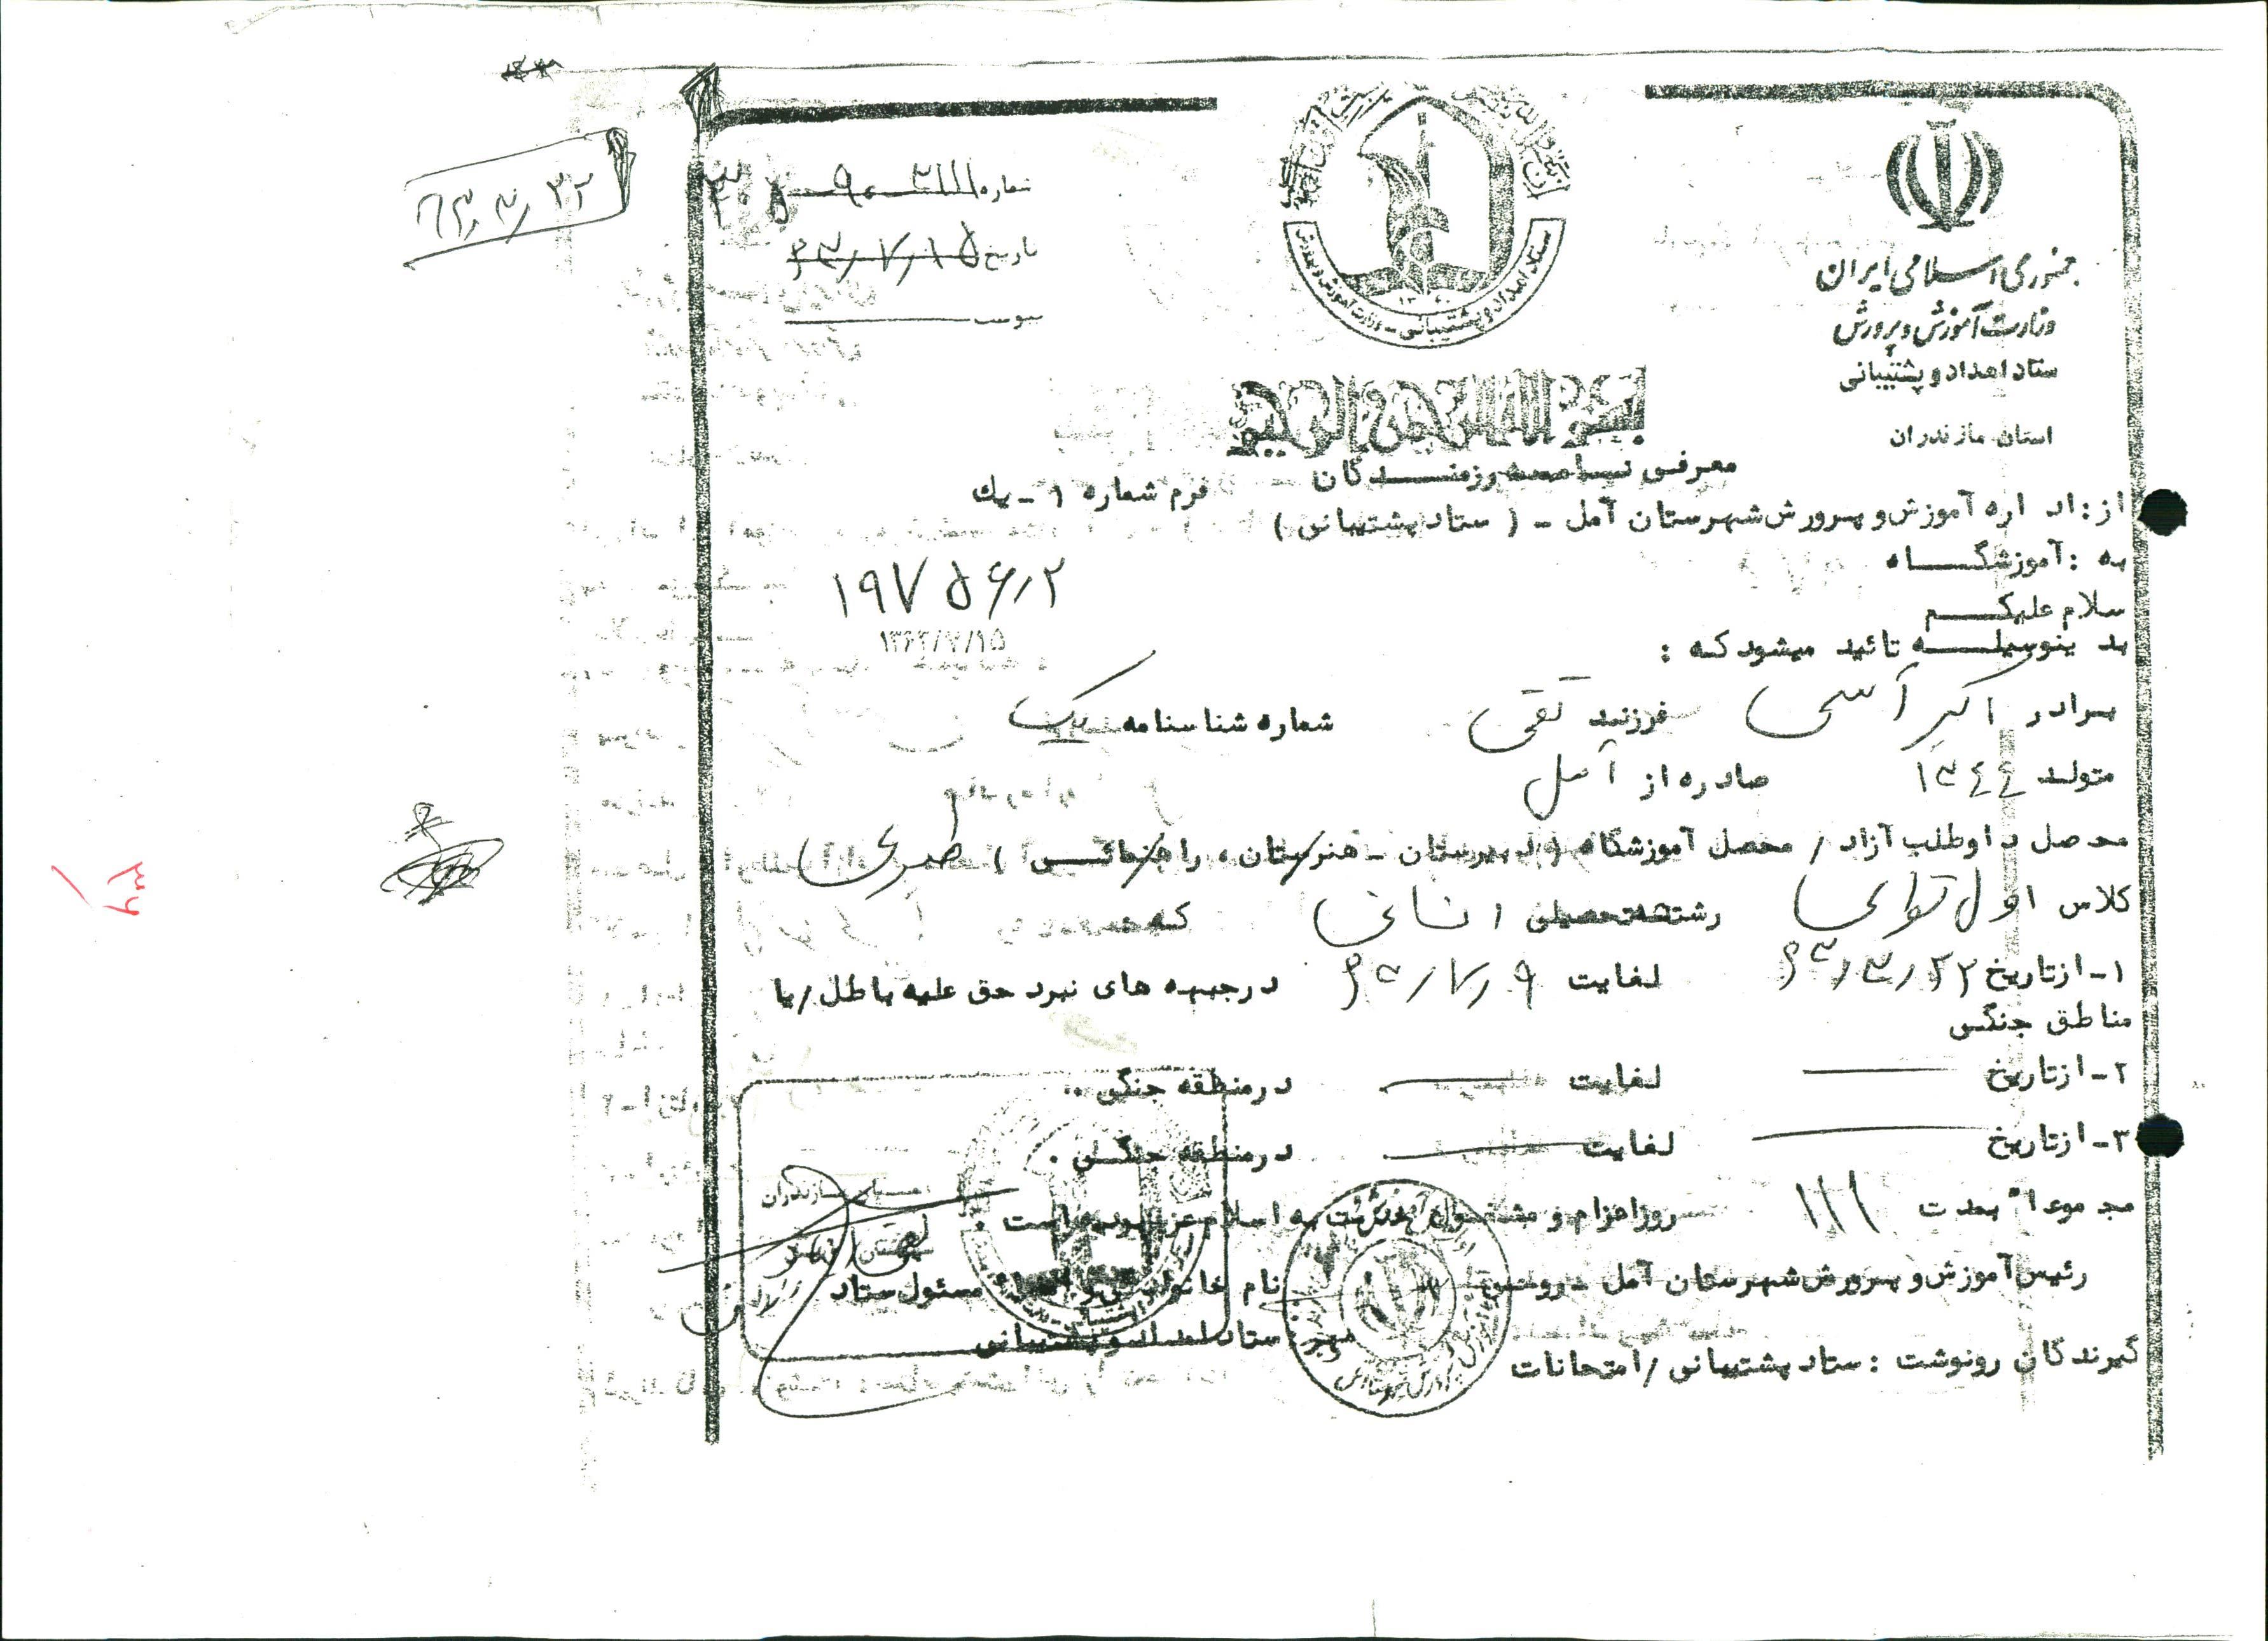 جمهوری اسلامی ایران
وزارت آموزش و پرورش
ستاد امداد و پشتیبانی
استان مازندران
ستاد امداد و پشتیبانی - وزارت آموزش و پرورش
۱۳۶۰
شماره
تاریخ ۶۳/۷/۱۵
پیوست
۶۳/۳/۲۲
بسم الله الرحمن الرحیم
معرفی نامه رزمندگان
فرم شماره ۱ - یك
از : اداره آموزش و پرورش شهرستان آمل - ( ستاد پشتیبانی )
به : آموزشگاه
۱۹۷۵۶/۲
سلام علیکم
۱۳۶۳/۷/۱۵
بدینوسیله تائید میشود که :
برادر اکبر آسی فرزند تقی شماره شناسنامه یک
متولد ۱۳۴۴ صادره از آمل
محصل داوطلب آزاد / محصل آموزشگاه ( دبیرستان - هنرستان ، راهنمائی ) طبری
کلاس اول رشته تحصیلی انسانی که
۱- از تاریخ ۶۳/۳/۲۲ لغایت ۶۳/۷/۹ در جبهه های نبرد حق علیه باطل / یا
مناطق جنگی
۲- از تاریخ لغایت در منطقه جنگی ..
۳- از تاریخ لغایت در منطقه جنگی .
مجموعا" بمدت ۱۱۱ روز اعزام و مشغول خدمت به اسلام عزیز بوده است .
رئیس آموزش و پرورش شهرستان آمل - نام خانوادگی مسئول ستاد
مهر ستاد امداد و پشتیبانی
گیرندگان رونوشت : ستاد پشتیبانی / امتحانات
۳۶